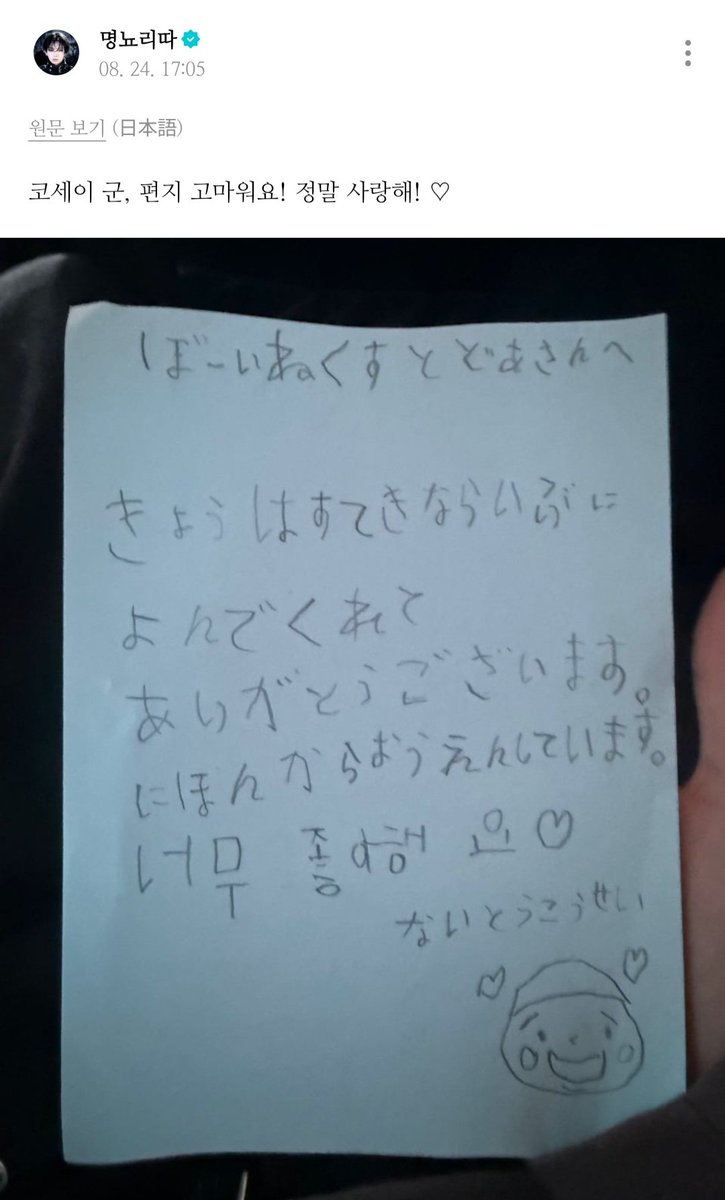 명뇨리따
08. 24. 17:05
원문 보기 (日本語)
코세이 군, 편지 고마워요! 정말 사랑해! ♡
ぼーいねくすとどあさんへ
きょうはすてきならいぶに
よんでくれて
ありがとうございます。
にほんからおうえんしています。
너무 좋아해요♡
ないとうこうせい